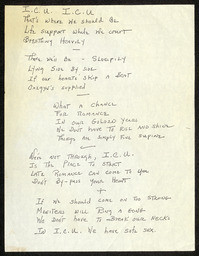 I.C.U. I.C.U
That's where we should be
Life support while we court
Breathing heavily
There we'd be - sleepily
Lying side by side
If our hearts skip a beat
Oxygen's supplied
What a chance
For romance
In our golden years
We don't have to
Things are
Now, not through, I.C.U.
Is the place to start
Late romance can come to you
Don't by-pass your heart
+
If we should come on too strong
Monitors will ring a gong
We don't have to break our necks
In I.C.U. we have safe sex.